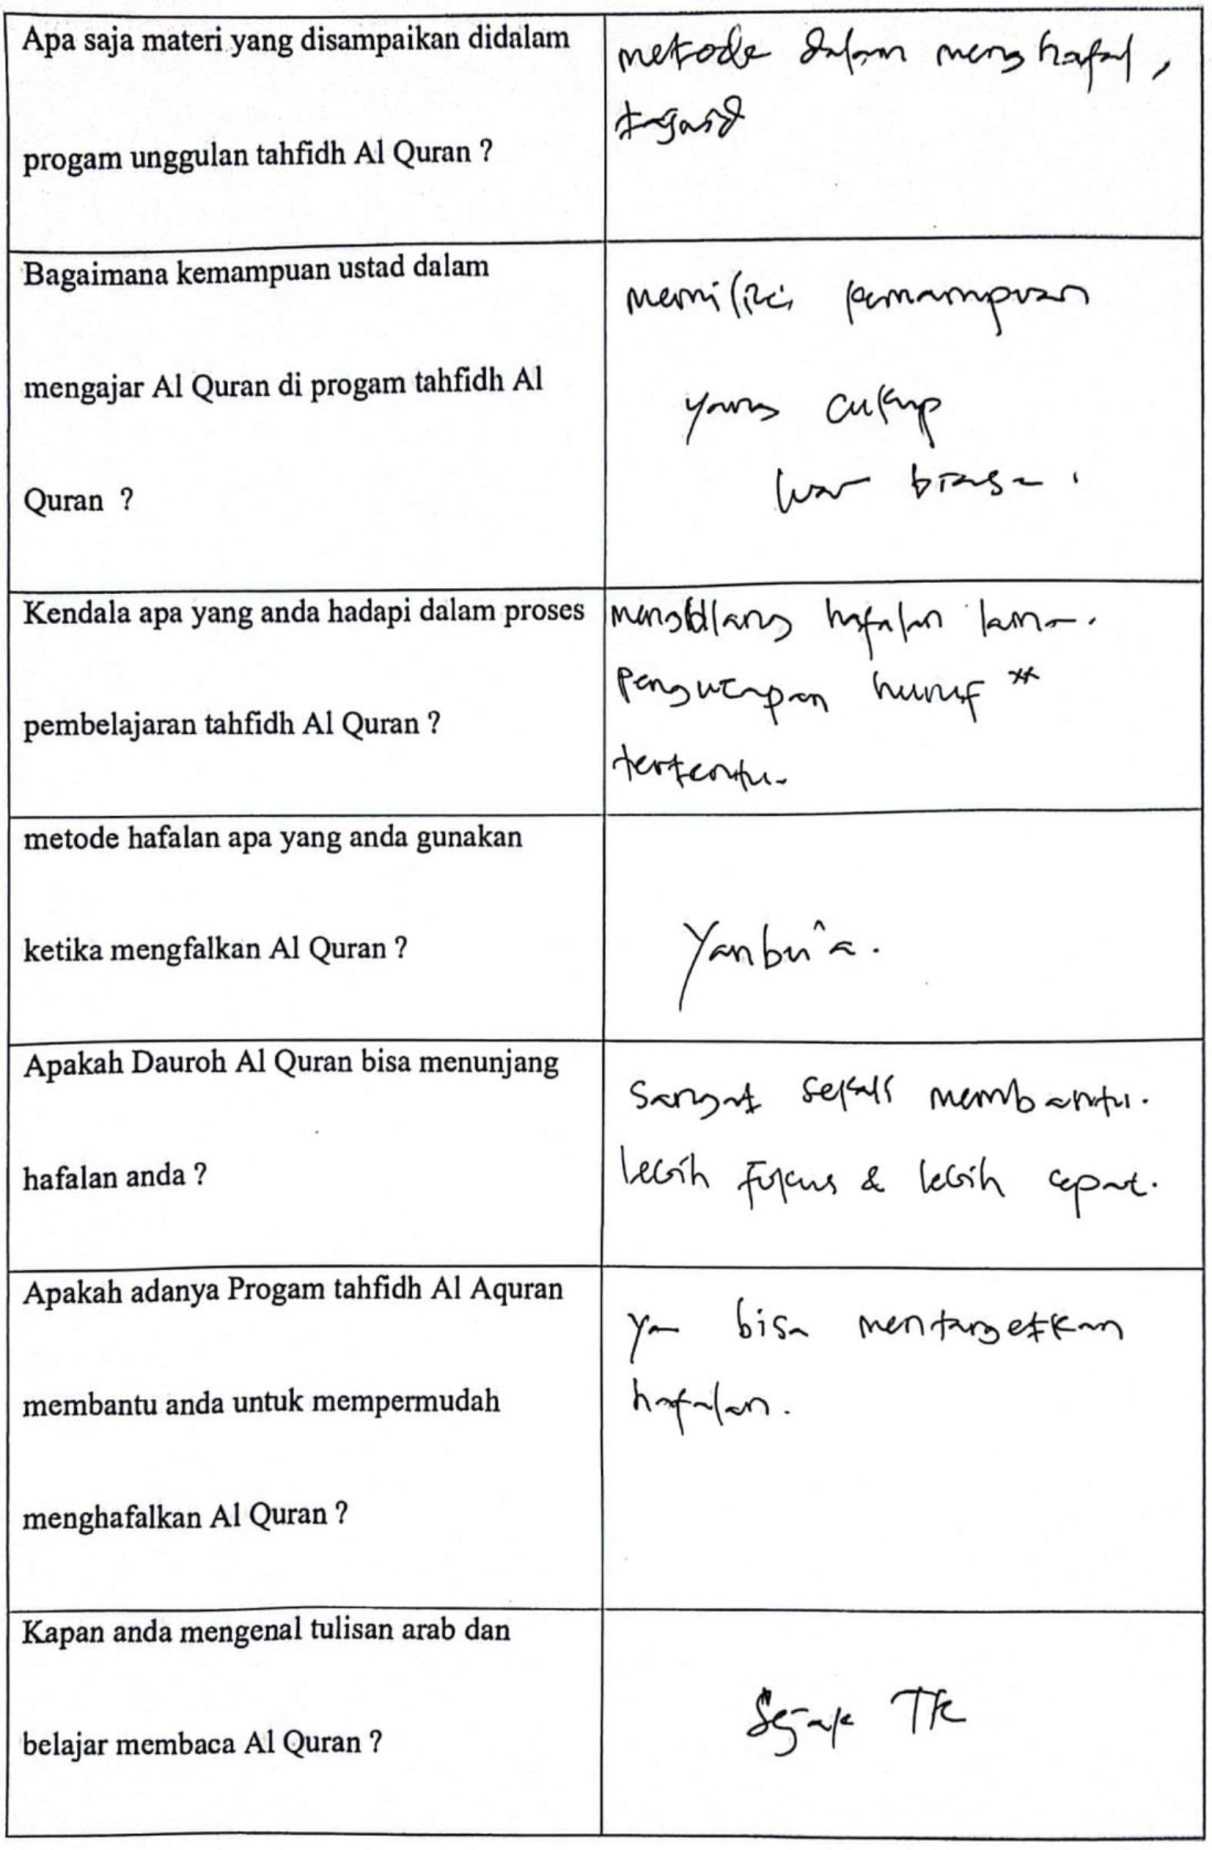 Apa saja materi yang disampaikan didalam
progam unggulan tahfidh Al Quran ?
metode dalam menghafal,
tajwid
Bagaimana kemampuan ustad dalam
mengajar Al Quran di progam tahfidh Al
Quran ?
memiliki kemampuan
yang cukup
luar biasa.
Kendala apa yang anda hadapi dalam proses
pembelajaran tahfidh Al Quran ?
mengulang hafalan lama.
pengucapan huruf **
tertentu.
metode hafalan apa yang anda gunakan
ketika mengfalkan Al Quran ?
Yanbu'a.
Apakah Dauroh Al Quran bisa menunjang
hafalan anda ?
Sangat sekali membantu.
lebih Fokus & lebih cepat.
Apakah adanya Progam tahfidh Al Aquran
membantu anda untuk mempermudah
menghafalkan Al Quran ?
ya bisa mentargetkan
hafalan.
Kapan anda mengenal tulisan arab dan
belajar membaca Al Quran ?
Sejak TK